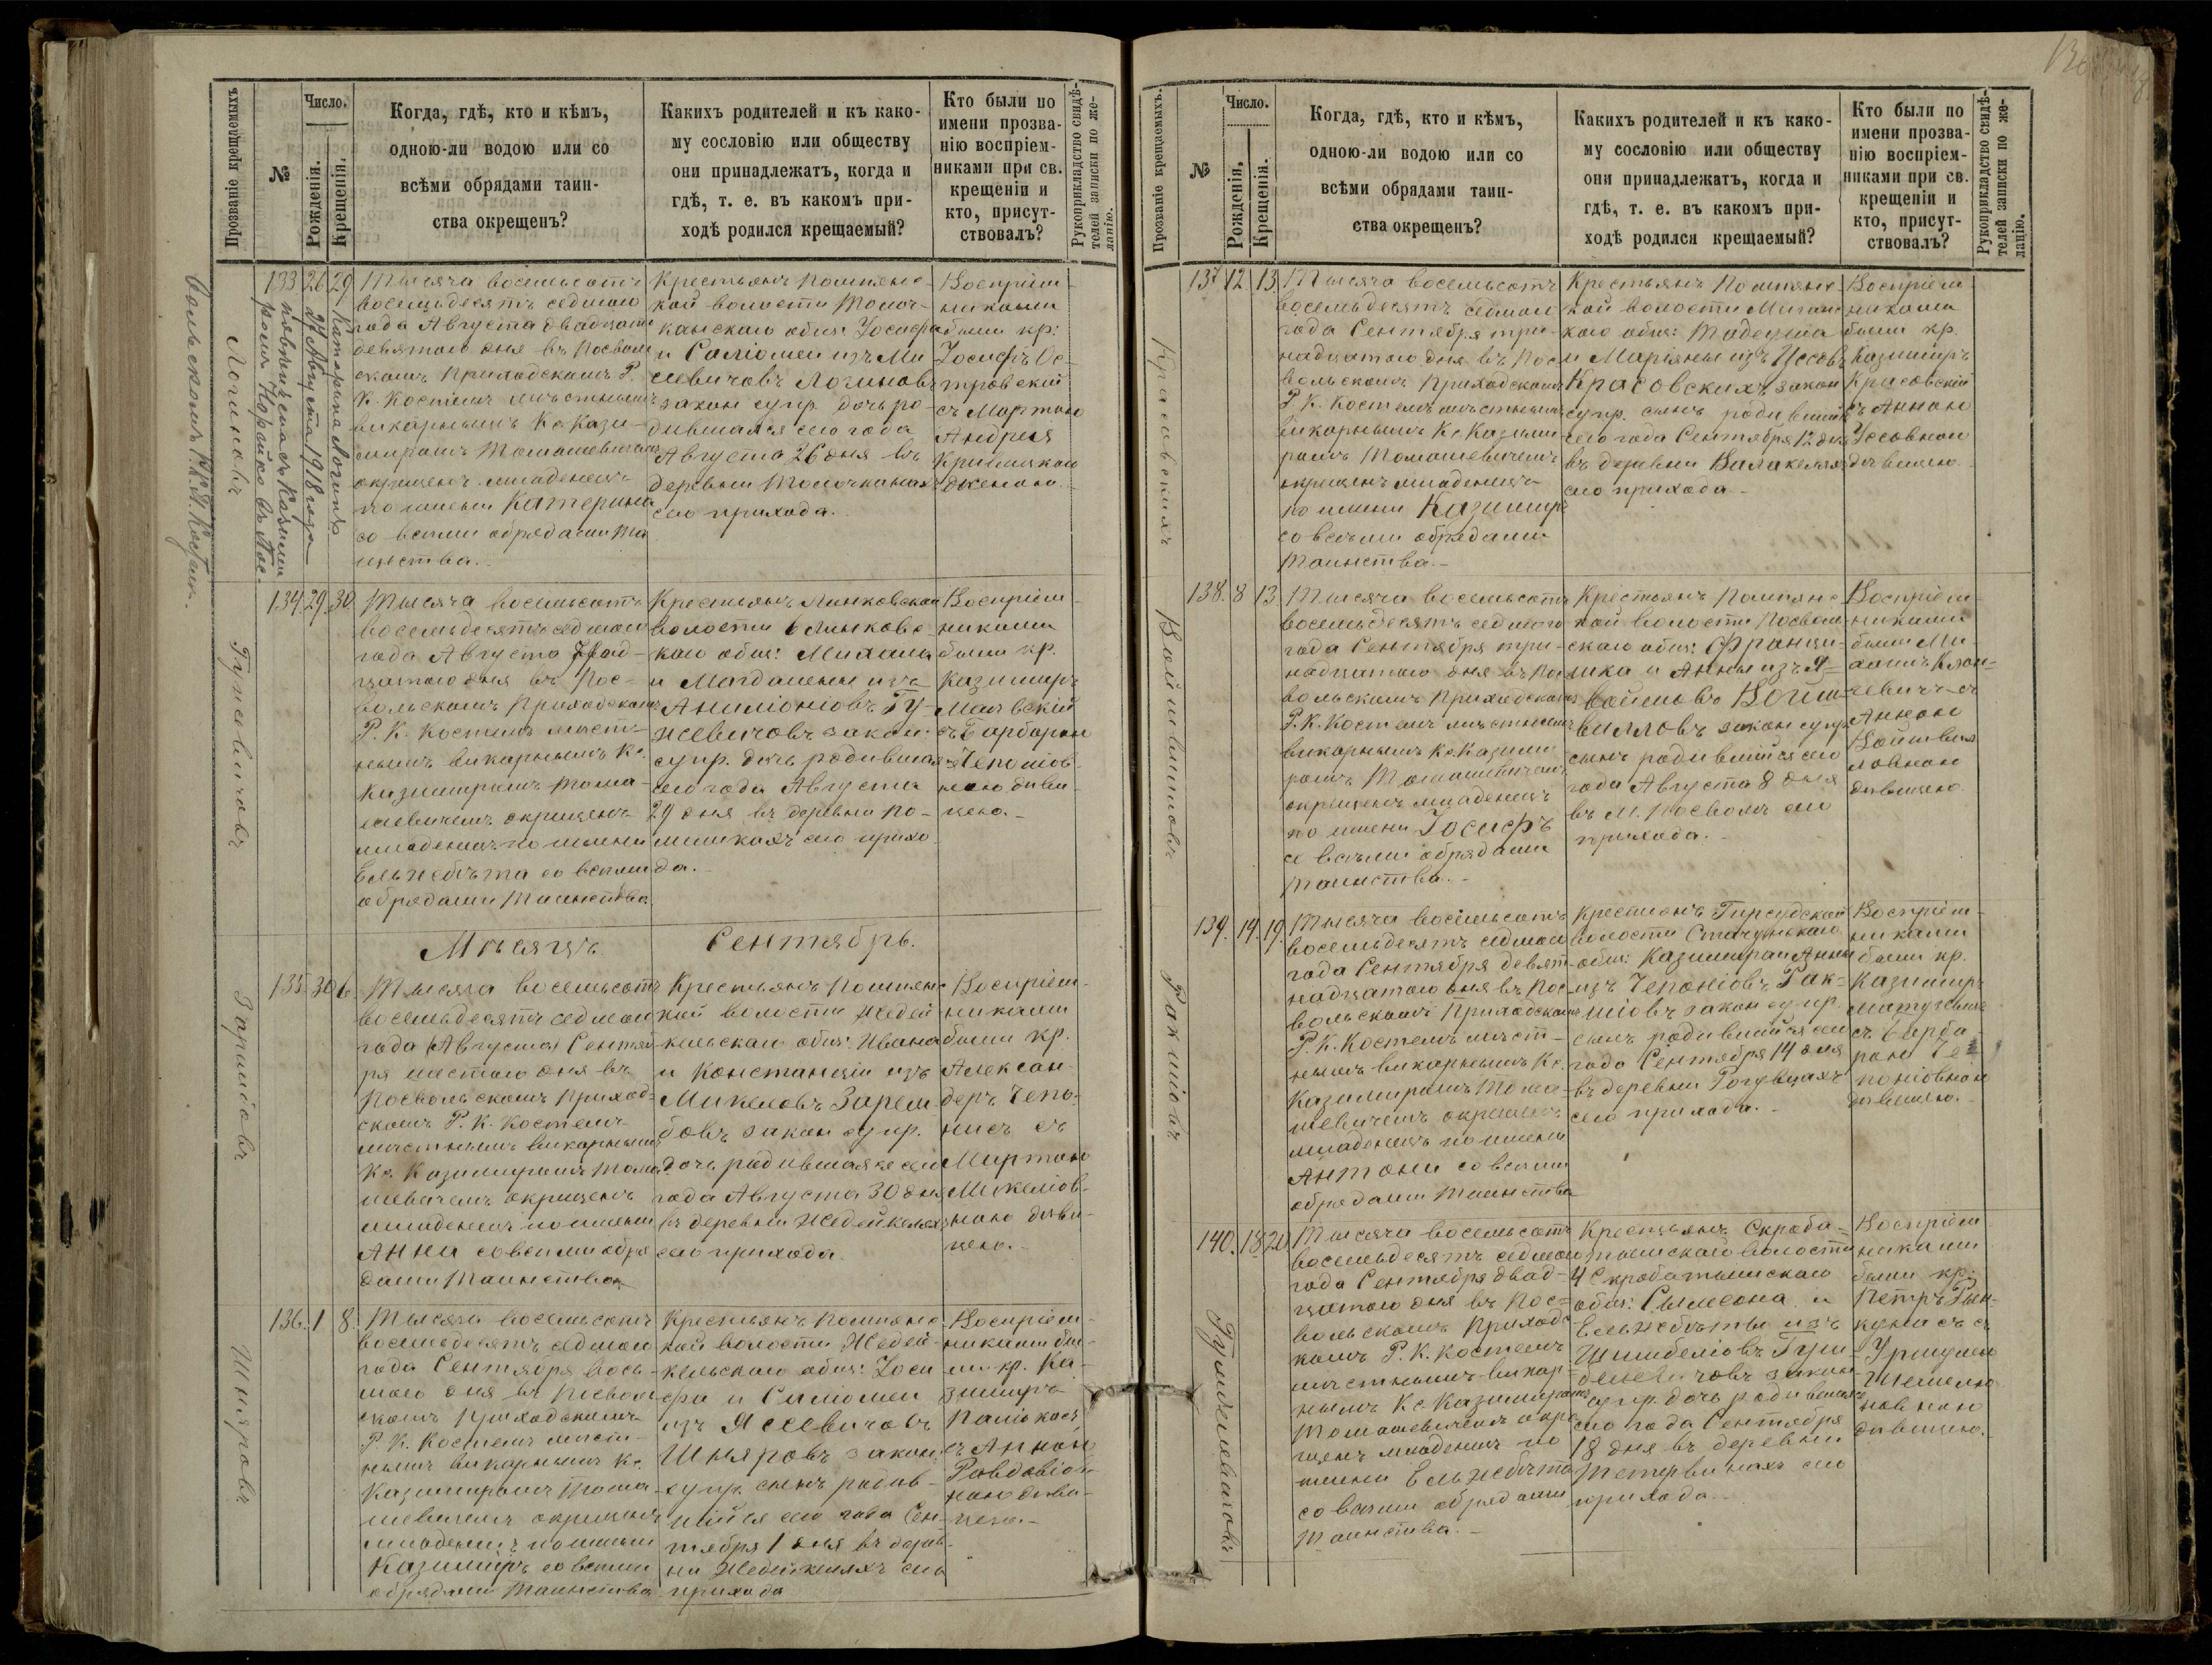 Прозваніе крещаемыхъ
№
Число.
Рожденія.
Крещенія.
Когда, гдѣ, кто и кѣмъ,
одною-ли водою или со
всѣми обрядами таин-
ства окрещенъ?
Какихъ родителей и къ како-
му сословію или обществу
они принадлежатъ, когда и
гдѣ, т. е. въ какомъ при-
ходѣ родился крещаемый?
Кто были по
имени прозва-
нію воспріем-
никами при св.
крещеніи и
кто, присут-
ствовалъ?
Рукоприкладство свидѣ-
телей записки по же-
ланію.
Логиновъ
133 26 29
Катерина Логинъ
27 Августа 1918 года
повѣнчана съ
вольскомъ Р. К. Костелѣ.
Тысяча восемьсотъ
восемьдесятъ седмого
года Августа двадцать
девятого дня въ Посволь
скомъ Приходскомъ Р.
К. Костелѣ мѣстнымъ
викарнымъ Кс. Кази-
миромъ Томашевичемъ
окрещенъ младенецъ
по имени Катерина
со всѣми обрядами Та
инства.
Крестьянъ Помпянс
кой волости
канскаго общ: Іосифа
и Саломеи изъ Ми
севичовъ Логиновъ
закон супр. дочь ро-
дившаяся сего года
Августа 26 дня въ
деревни
сего прихода.
Воспріем-
никами
были кр:
Іосифъ Ос-
тровскій
съ Мартою
Андрея
женою.
Гужевичовъ
134. 29. 30
Тысяча восемьсотъ
восемьдесятъ седмого
года Августа трид-
цатого дня въ Пос-
вольскомъ Приходскомъ
Р. К. Костелѣ мѣст-
нымъ викарнымъ Кс.
Казимиромъ Тома-
шевичемъ окрещенъ
младенецъ по имени
Ельжбѣта со всѣми
обрядами Таинства
Крестьянъ Линковской
волости Линковс
каго общ: Михаила
и Магдалены изъ
Анилоніовъ Гу-
жевичовъ закон:
супр. дочь родившаяся
сего года Августа
29 дня въ деревни По-
сего прихо
да.
Воспріем-
никами
были кр.
Казимиръ
съ Барбарою
Чепоніов-
ною дѣви-
цею.
Мѣсяцъ Сентябрь.
Зарембовъ
135. 30 6.
Тысяча восемьсотъ
восемьдесятъ седмого
года (Августа) Сентяб
ря шестого дня въ
Посвольскомъ Приход-
скомъ Р. К. Костелѣ
мѣстнымъ викарнымъ
Кс. Казимиромъ Тома
шевичемъ окрещенъ
младенецъ по имени
Анна со всѣми обря
дами Таинства
Крестьянъ Помпянс
кой волости Жедей
кельскаго общ: Ивана
и Констанціи изъ
Микеловъ Зарем-
бовъ закон супр.
дочь родившаяся сего
года Августа 30 дня
въ деревни Жедейкеляхъ
сего прихода.
Воспріем-
никами
были кр.
Алексан-
деръ Чепо-
нисъ съ
Мартою
Микеліов-
ною дѣви-
цею.
Шняровъ
136. 1 8.
Тысяча восемьсотъ
восемьдесятъ седмого
года Сентября вось-
мого дня въ Посволь
скомъ Приходскомъ
Р. К. Костелѣ мѣст-
нымъ викарнымъ Кс.
Казимиромъ Тома-
шевичемъ окрещенъ
младенецъ по имени
Казимиръ со всѣми
обрядами Таинства
Крестьянъ Помпянс
кой волости Жедей-
кельскаго общ: Іоси
фа и Саломеи
изъ Ясевичовъ
Шняровъ закон:
супр. сынъ родив-
шійся сего года Сен-
тября 1 дня въ дерев-
ни Жедейкеляхъ сего
прихода
Воспріем-
никами бы-
ли кр. Ка-
зимиръ
съ Анною
ною дѣви-
цею.
Прозваніе крещаемыхъ.
№
Число.
Рожденія.
Крещенія.
Когда, гдѣ, кто и кѣмъ,
одною-ли водою или со
всѣми обрядами таин-
ства окрещенъ?
Какихъ родителей и къ како-
му сословію или обществу
они принадлежатъ, когда и
гдѣ, т. е. въ какомъ при-
ходѣ родился крещаемый?
Кто были по
имени прозва-
нію воспріем-
никами при св.
крещеніи и
кто, присут-
ствовалъ?
Рукоприкладство свидѣ-
телей записки по же-
ланію.
Красовскихъ
137 12 13
Тысяча восемьсотъ
восемьдесятъ седмого
года Сентября три-
надцатого дня въ Пос-
вольскомъ Приходскомъ
Р. К. Костелѣ мѣстнымъ
викарнымъ Кс. Казими
ромъ Томашевичемъ
окрещенъ младенецъ
по имени Казимиръ
со всѣми обрядами
Таинства.
Крестьянъ Помпянс
кой волости
каго общ: Тадеуша
и Маріянны изъ Усовъ
Красовскихъ закон
супр. сынъ родившійся
сего года Сентября 12 дня
въ деревни Валакеляхъ
сего прихода.
Воспріем-
никами
были кр.
Казимиръ
Красовскій
съ Анною
Усовною
дѣвицею.
Войшвилловъ
138. 8 13
Тысяча восемьсотъ
восемьдесятъ седмого
года Сентября три-
надцатого дня въ Пос
вольскомъ Приходскомъ
Р. К. Костелѣ мѣстнымъ
викарнымъ Кс. Казими
ромъ Томашевичемъ
окрещенъ младенецъ
по имени Іосифъ
со всѣми обрядами
таинства.
Крестьянъ Помпянс
кой волости Посволь
скаго общ: Франци-
шка и Анны изъ
Войш-
вилловъ закон супр
сынъ родившійся сего
года Августа 8 дня
въ М. Посволѣ сего
прихода.
Воспріем-
никами
были
съ
Анною
Войшвил
ловною
дѣвицею
Ракштовъ
139. 14. 19.
Тысяча восемьсотъ
восемьдесятъ седмого
года Сентября девят-
надцатого дня въ Пос-
вольскомъ Приходскомъ
Р. К. Костелѣ мѣст-
нымъ викарнымъ Кс.
Казимиромъ Тома-
шевичемъ окрещенъ
младенецъ по имени
Антони со всѣми
обрядами таинства
Крестьянъ
волости
общ: Казимира и Анны
изъ Чепоніовъ Рак-
закон супр.
сынъ родившійся сего
года Сентября 14 дня
въ деревни
сего прихода.
Воспріем-
никами
были кр.
Казимиръ
съ Барба-
рою Че-
поніовною
дѣвицею.
140. 18 20.
Тысяча восемьсотъ
восемьдесятъ седмого
года Сентября двад-
цатого дня въ Пос-
вольскомъ Приходс
комъ Р. К. Костелѣ
мѣстнымъ викар-
нымъ Кс Казимиромъ
Томашевичемъ окре
щенъ младенецъ по
имени Ельжбѣта
со всѣми обрядами
Таинства.
Крестьянъ Скроба-
тышскаго волости
и Скробатышскаго
общ: Сымеона и
Ельжбѣты изъ
закон
супр. дочь родившаяся
сего года Сентября
18 дня въ деревни
Тетервинахъ сего
прихода.
Воспріем-
никами
были кр.
Петръ
съ
Уршулею
новною
дѣвицею.